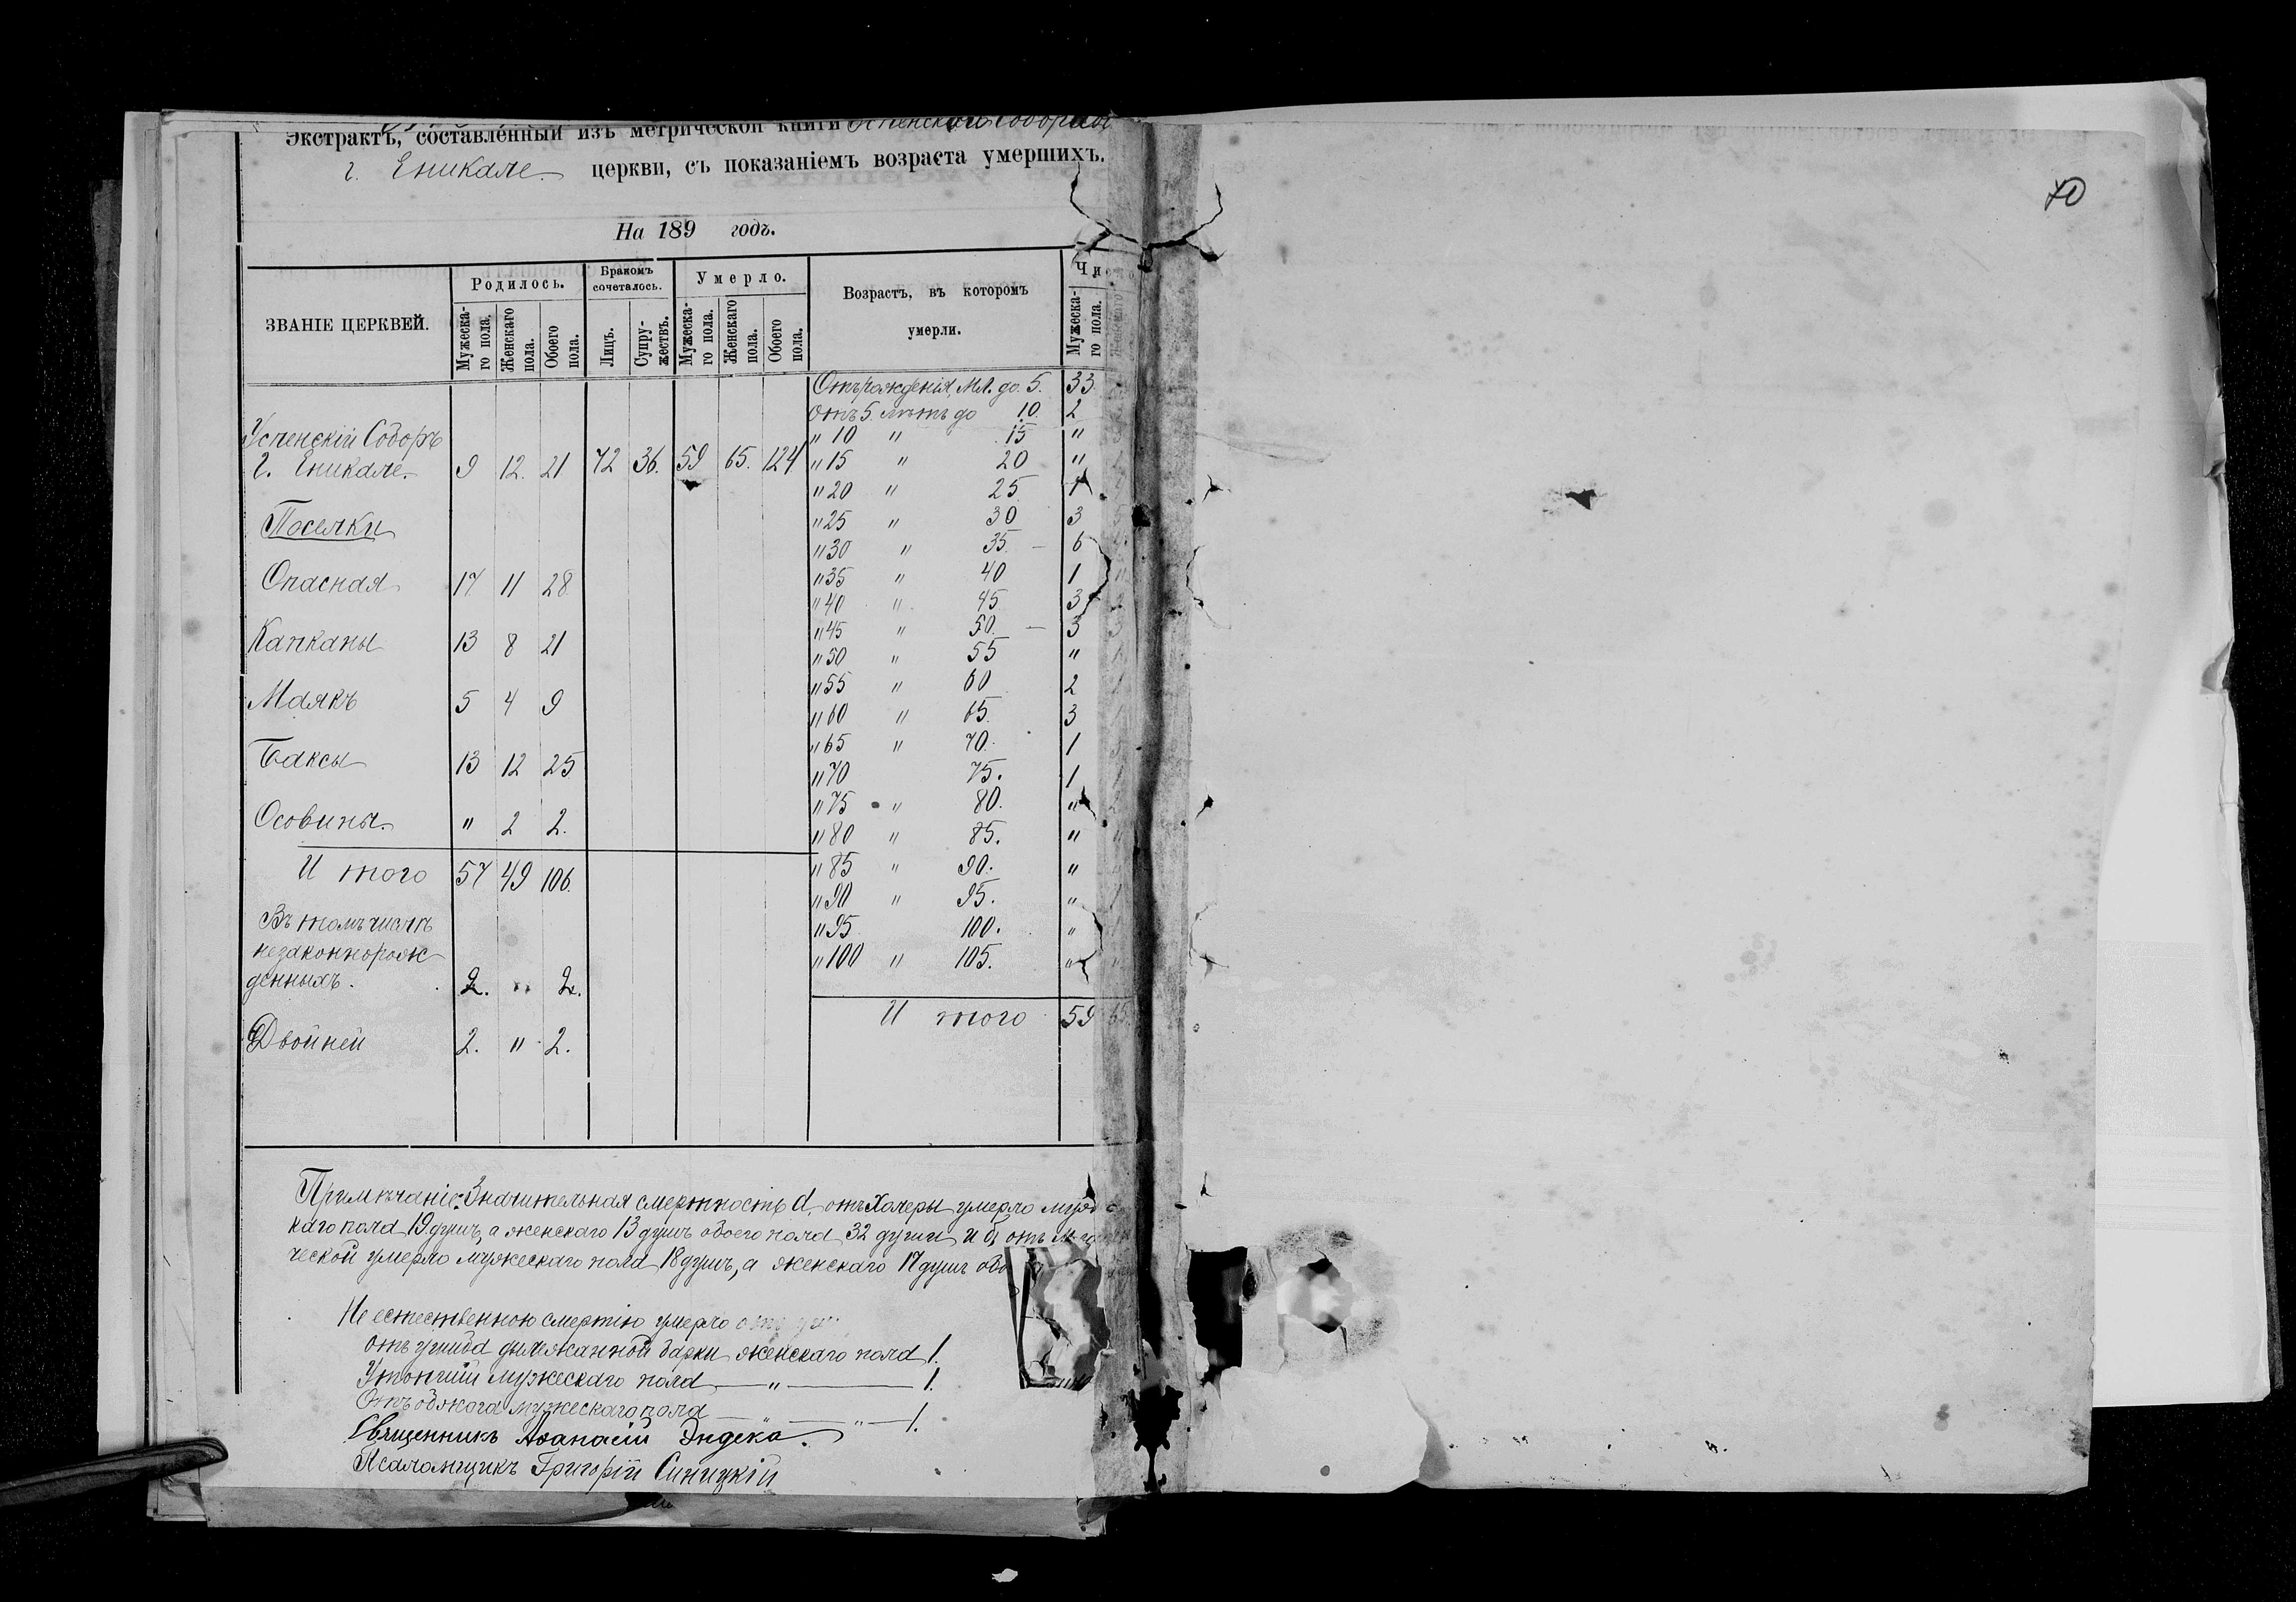 Экстрактъ, составленный изъ метрической книги Успенской Соборной
г. Еникале церкви, съ показаніемъ возраста умершихъ.
70
На 189 годъ.
ЗВАНІЕ ЦЕРКВЕЙ.
Родилось.
Мужеска-
го пола.
Женскаго
пола.
Обоего
пола.
Бракомъ
сочеталось.
Лицъ.
Супру-
жествъ.
Умерло.
Мужеска-
го пола.
Женскаго
пола.
Обоего
пола.
Возрастъ, въ которомъ
умерли.
Мужеска-
го пола.
Успенскій Соборъ
г. Еникале. 9 12. 21 72 36. 59 65. 124
Поселки
Опасная 17 11 28
Капканы 13 8 21
Маякъ 5 4 9
Баксы 13 12 25
Осовины. " 2 2.
Итого 57 49 106.
Въ томъ числѣ
незаконнорож-
денныхъ. 2. " 2.
Двойней 2. " 2.
Отъ рожденія, мл. до 5. 33
отъ 5 лѣтъ до 10. 2
" 10 " 15 "
" 15 " 20 "
" 20 " 25 1
" 25 " 30 3
" 30 " 35. — 6
" 35 " 40 1
" 40 " 45 3
" 45 " 50. — 3
" 50 " 55 "
" 55 " 60 2
" 60 " 65. 3
" 65 " 70. 1
" 70 75. 1
" 75 " 80. "
" 80 " 85. "
" 85 " 90. "
" 90 " 95. "
" 95 100. "
" 100 " 105. "
Итого 59 65
Примѣчаніе: Значительная смертность а, отъ Холеры умерло мужес
каго пола 19 душъ, а женскаго 13 душъ обоего пола 32 души и б, отъ
ческой умерло мужескаго пола 18 душъ, а женскаго 17 душъ
Не естественною смертію умерло
отъ ушиба женскаго пола 1.
Утонгій мужескаго пола — " — 1.
Отъ обжога мужескаго пола — " — 1.
Священникъ Аѳанасій Эндека.
Псаломщикъ Григорій Синицкій